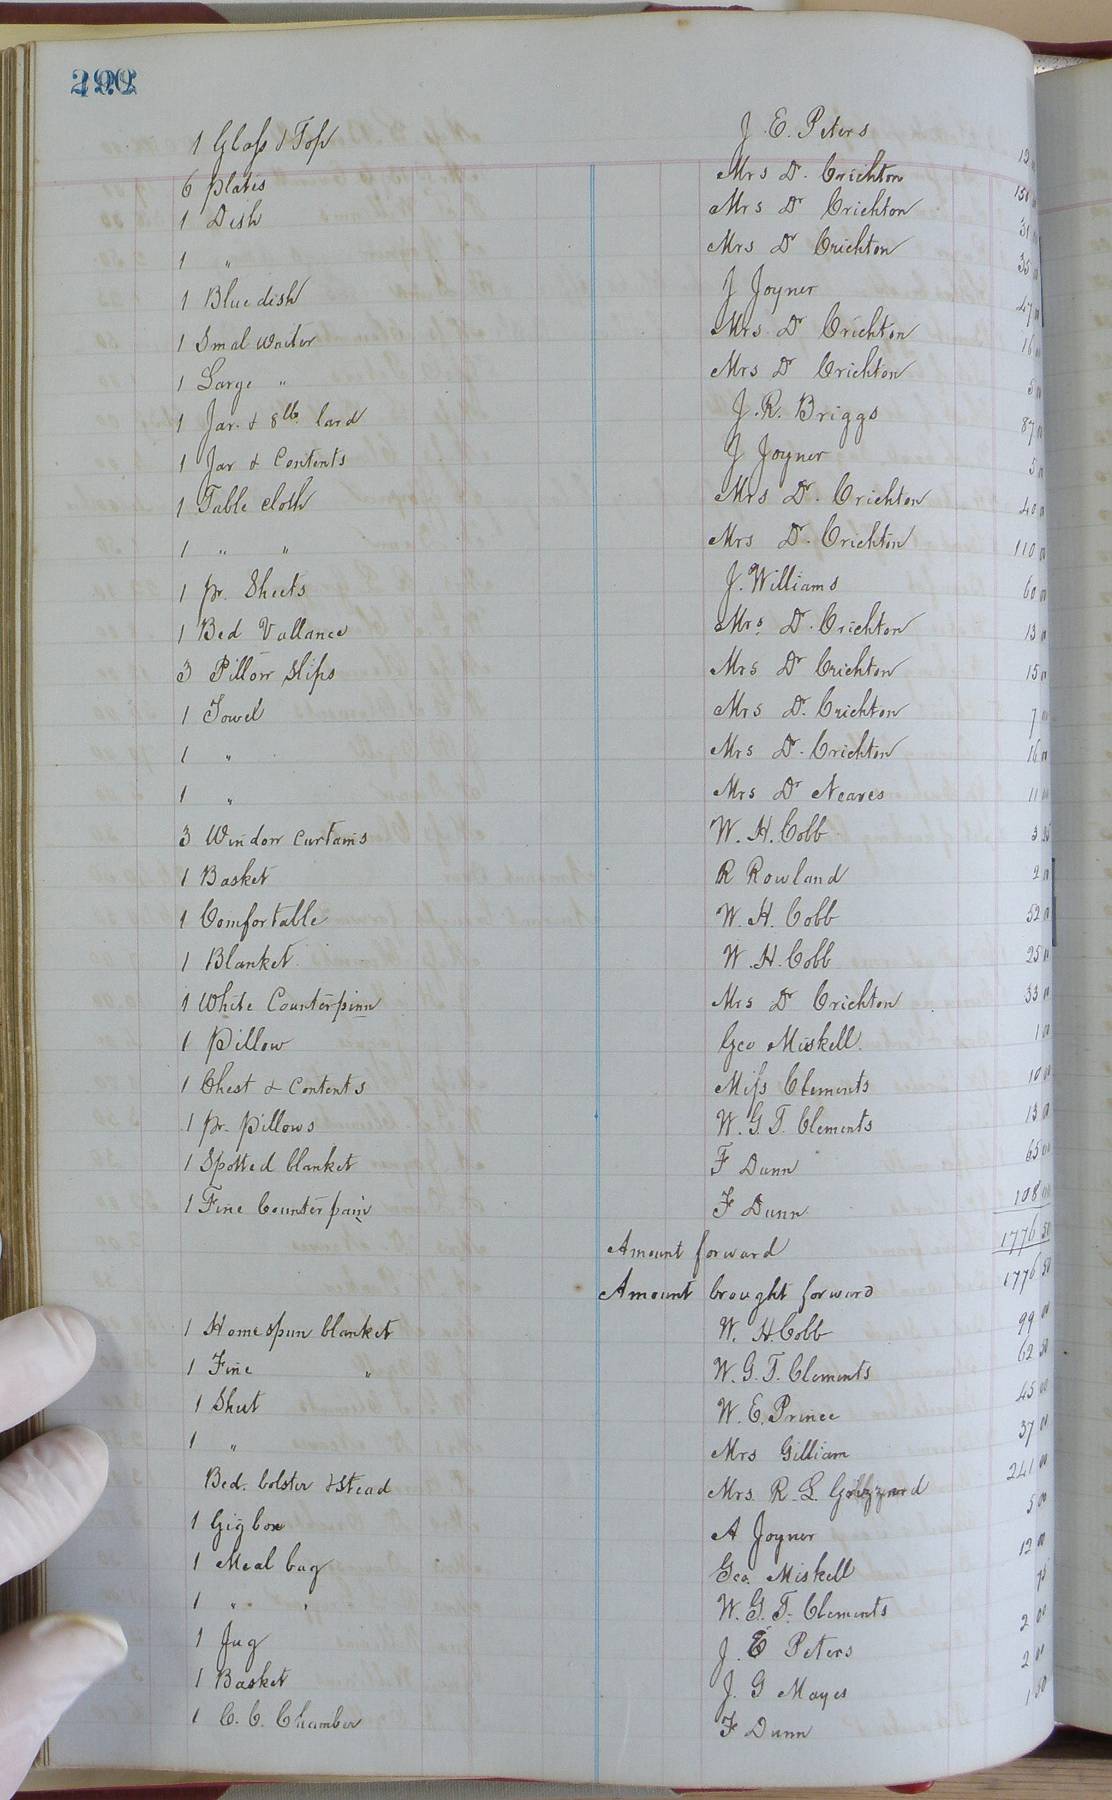 1 Glass & Top J. E. Peters
6 plates Mrs Dr. Crichton 150
1 Dish Mrs Dr Crichton 31
1 " Mrs Dr Crichton 35
1 Blue dish J Joyner 47
1 Smal waiter Mrs. Dr Crichton 16
1 Large " Mrs Dr Crichton 5
1 Jar. & 8 lb lard J. R. Briggs 87
1 Jar & Contents J Joyner 5
1 Table cloth Mrs Dr. Crichton 40 00
1 " " Mrs Dr. Crichton 110 00
1 pr. Sheets J. Williams 60 00
1 Bed Vallance Mrs. Dr. Crichton 13 00
3 Pillow Slips Mrs Dr Crichton 15 00
1 Towel Mrs Dr. Crichton 7 00
1 " Mrs Dr. Crichton 16 00
1 " Mrs Dr Neaves 11 00
3 Window curtains W. H. Cobb 3
1 Basket R Rowland 2 00
1 Comfortable W. H. Cobb 52 00
1 Blanket W. H. Cobb 25 00
1 White Counterpinn Mrs Dr Crichton 33 00
1 Pillow Geo Miskell. 1 00
1 Chest & Contents Miss Clements 10 00
1 pr. pillows W. G. T. Clements 13 00
1 Spotted blanket F Dunn 65 00
1 Fine Counterpain F Dunn 108 00
Amount forward 1776 50
Amount brought forward 1776 50
1 Homespun blanket W. H. Cobb 99 00
1 Fine " W. G. T. Clements 62 50
1 Sheet W. E. Prince 45 00
1 " Mrs Gilliam 37 00
Bed. bolster & stead Mrs. R. L. 241 00
1 Gig box A Joyner 5 00
1 Meal bag Geo. Miskell 12 00
1 " " W. G. T. Clements 75
1 Jug J. E Peters 2 00
1 Basket J. G Mayes 2 00
1 C. C. Chamber F Dunn 1 50